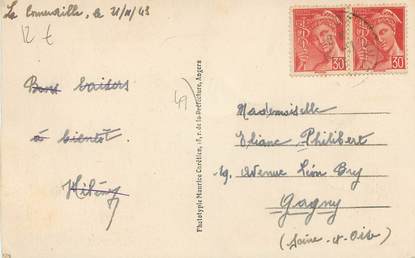 La Cornuaille, le 21/11/43
12 €
Bons baisers
à bientôt.
49
Phototypie Maurice Chrétien, 18, r. de la Préfecture, Angers
30
30
Mademoiselle
Eliane Philibert
19, Avenue Léon Bry
Gagny
(Seine-et-Oise)